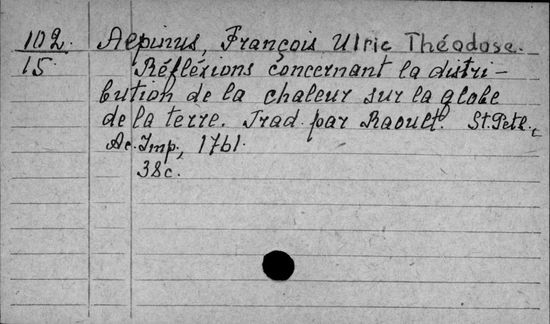 102. Aepinus, François Ulric Théodose.
15 Réfléxions concernant la distri-
bution de la chaleur sur la globe
de la terre. Trad. par Raoult. St. Petr.,
Ac. Imp., 1761.
38c.